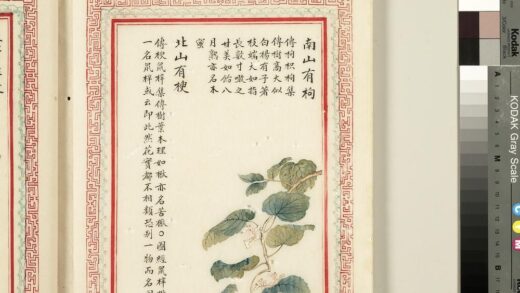 南山有枸
傳枸枳枸集
傳樹高大似
白楊有子著
枝端大如指
長數寸噉之
甘美如飴八
月熟亦名木
蜜
北山有楰
傳楰鼠梓集傳樹葉木理如楸亦名苦楸○圖經鼠梓楸
一名鼠梓或云即此然花實都不相類恐别一物而名同
Kodak
KODAK Gray Scale
A
M
C